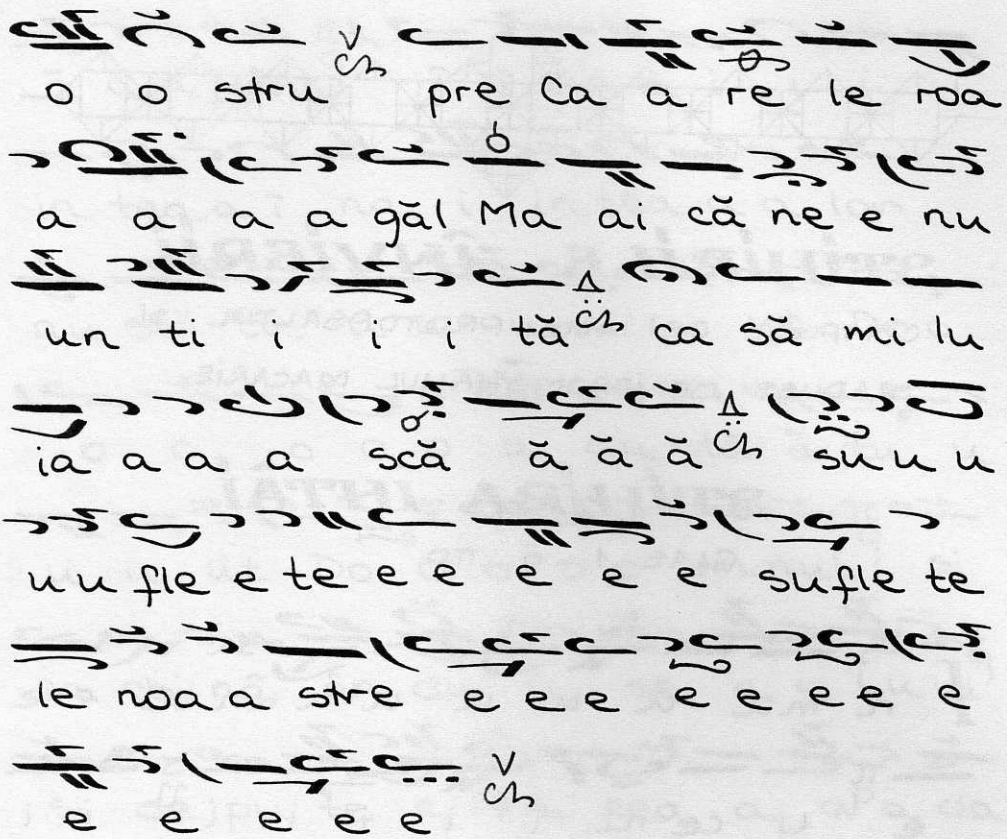 o o stru pre Ca a re le roa
a a a a găl Ma ai că ne e nu
un ti i i i tă ca să mi lu
ia a a a scă ă ă ă su u u
u u fle e te e e e e e sufle te
le noa a stre e e e e e e e e
e e e e e